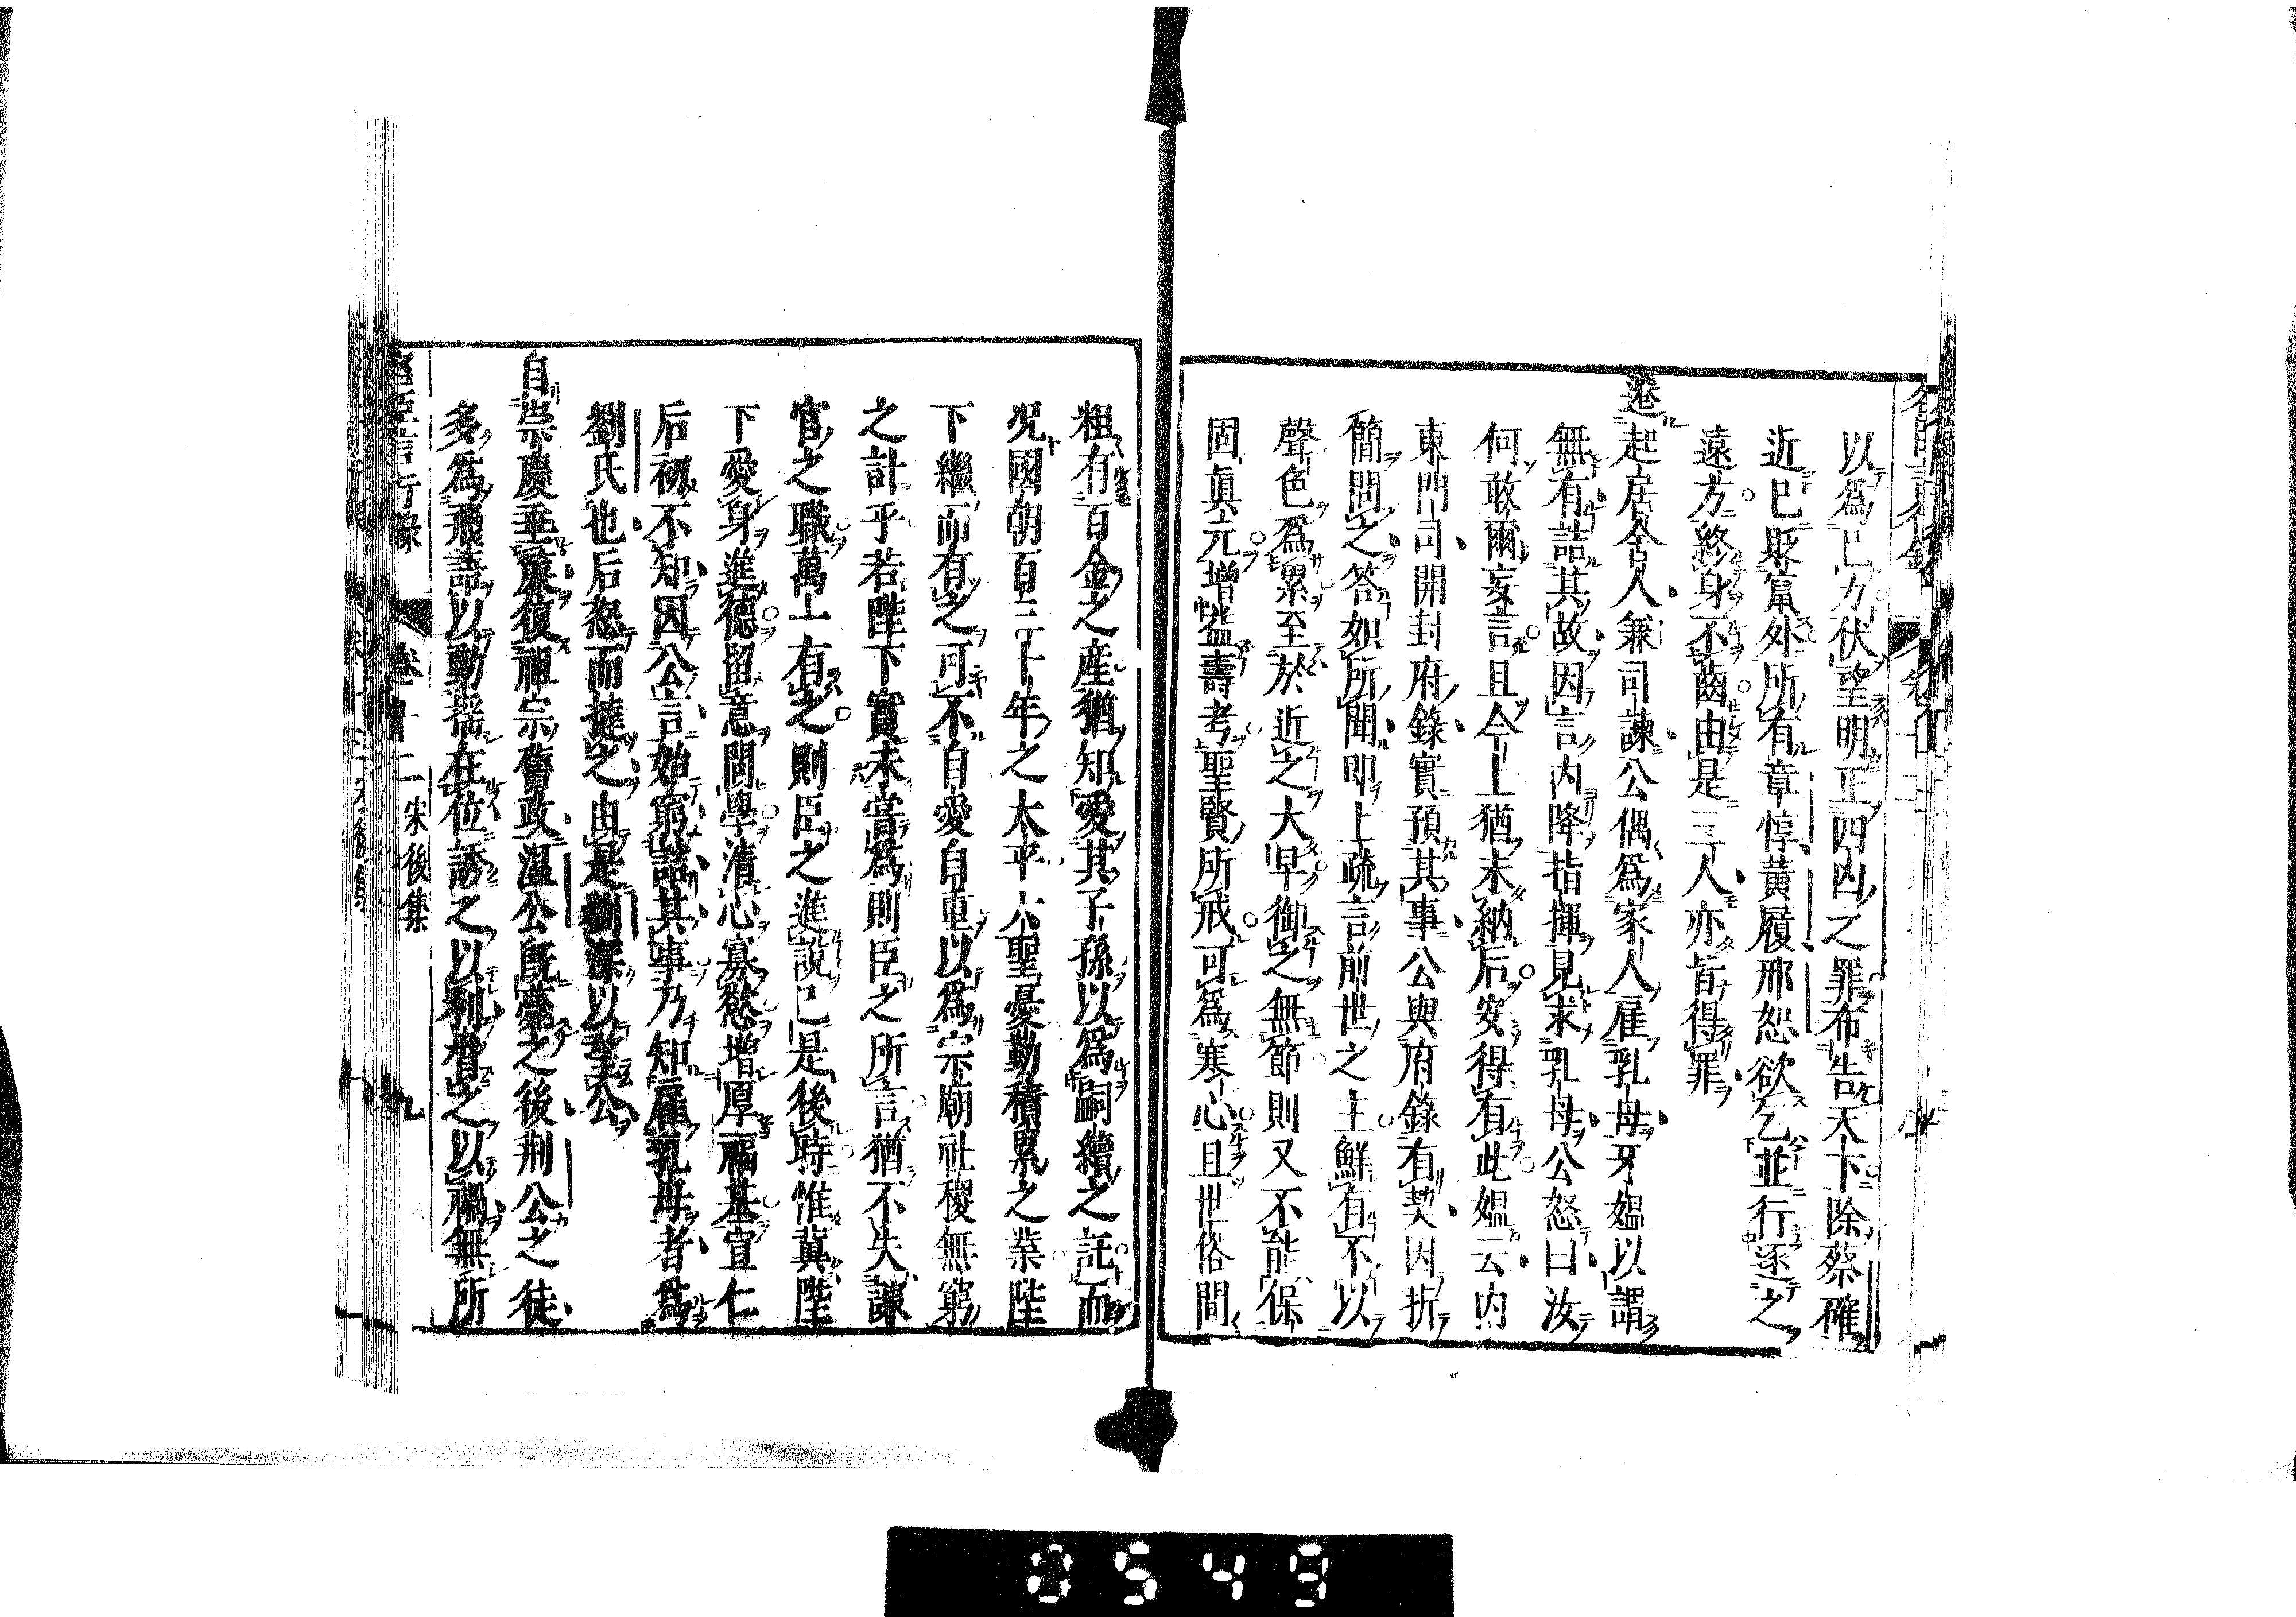 以爲已力伏望明正四凶之罪布告天下除蔡確
近已貶竄外所有章惇黃履邢恕欲乞並行逐之
遠方終身不齒由是三人亦皆得罪
遷起居舍人兼司諫公偶爲家人雇乳母牙媼以謂
無有詰其故因言内降指揮見求乳母公怒曰汝
何敢爾妄言且今上猶未納后安得有此媼云内
東門司開封府錄實預其事公與府錄有契因折
簡問之答如所聞即上疏言前世之主鮮有不以
聲色爲累至於近之大早御之無節則又不能保
固眞元增益壽考聖賢所戒可爲寒心且世俗間
粗有百金之産猶知愛其子孫以爲嗣續之託而
况國朝百三十年之太平六聖憂勤積累之業陛
下繼而有之可不自愛自重以爲宗廟社稷無窮
之計乎若陛下實未嘗爲則臣之所言猶不失諫
官之職萬一有之則臣之進説已是後時惟冀陛
下愛身進德留意問學清心寡慾增厚福基宣仁
后初不知因公言始窮詰其事乃知雇乳母者爲
劉氏也后怒而撻之由是劉深以望公
自崇慶垂簾復祖宗舊政溫公既薨之後荆公之徒
多爲飛語以動揺在位誘之以利脅之以禍無所
名臣言行錄 卷十二 宋後集 九
0549